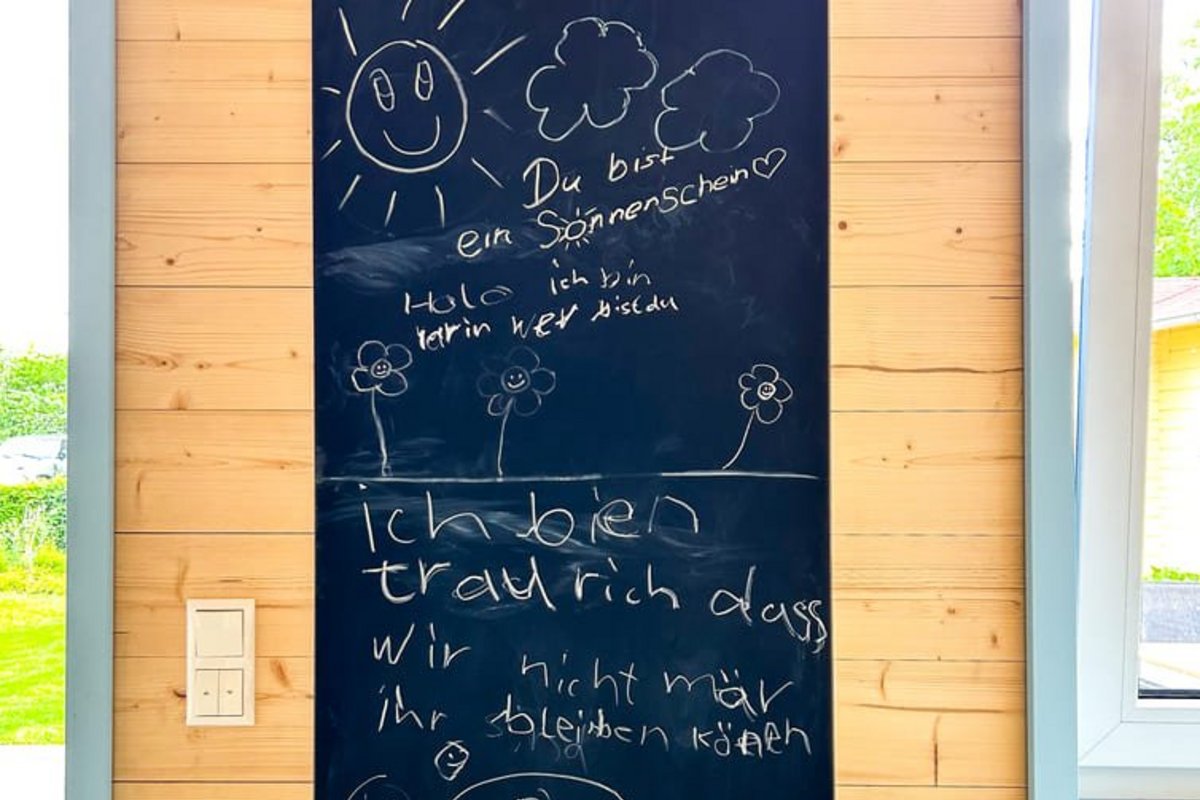 Du bist
ein Sonnenschein
Halo ich bin
wer bist du
ich bien
traurich dass
wir nicht mär
ihr bleiben könen